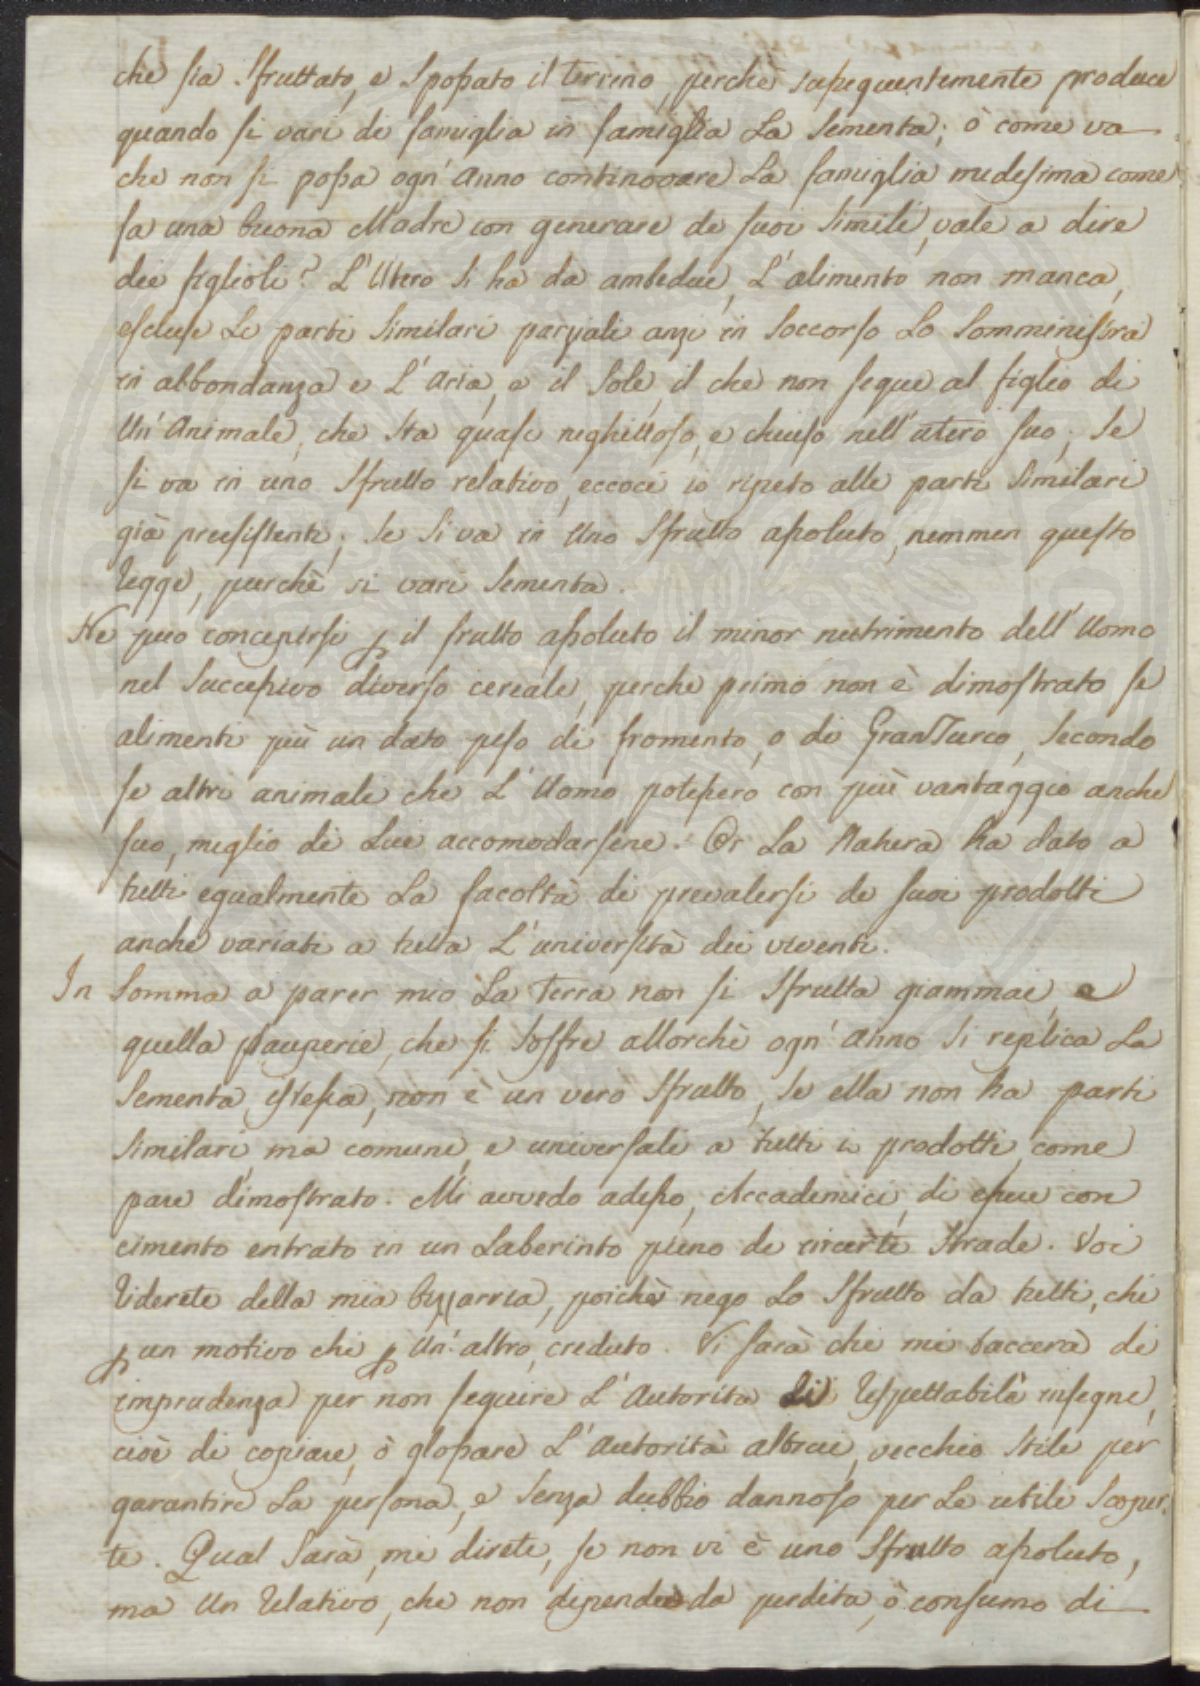 che sia sfruttato, e spossato il terreno, perchè susseguentemente produce
quando si vari di famiglia in famiglia La sementa; ò come va
che non si possa ogn'Anno continovare La famiglia medesima come
fa una buona Madre con generare de suoi simili, vale a dire
dei figlioli? L'Utero si ha da ambedue, L'alimento non manca,
escluse Le parti similari parziali anzi in soccorso Lo somministra
in abbondanza e L'Aria, e il Sole, il che non segue al figlio di
Un'Animale, che sta quasi neghittoso, e chiuso nell'utero suo. Se
si va in uno sfrutto relativo, eccoci io ripeto alle parti similari
già preesistenti; se si va in Uno sfrutto assoluto, nemmen questo
regge, purchè si vari sementa.
Ne può concepirsi p il frutto assoluto il minor nutrimento dell'Uomo
nel successivo diverso cereale, perche primo non è dimostrato se
alimenti più un dato peso di fromento, o di GranTurco, secondo
se altri animali che L'Uomo potessero con più vantaggio anche
suo, meglio di Lui accomodarsene. Or La Natura ha dato a
tutti egualmente La facoltà di prevalersi de suoi prodotti
anche variati a tutta L'università dei viventi.
In somma a parer mio La Terra non si sfrutta giammai, e
quella pauperie, che si soffre allorchè ogn'Anno si replica La
sementa istessa, non è un vero sfrutto, se ella non ha parti
similari, ma comuni, e universali a tutti i prodotti, come
pare dimostrato. Mi avvedo adesso, Accademici, di essere con
cimento entrato in un Laberinto pieno di incerte strade. Voi
riderete della mia bizzarria, poichè nego Lo sfrutto da tutti, chi
p un motivo chi p Un'altro, creduto. Vi sarà chi mi taccerà di
imprudenza per non seguire L'Autorita di rispettabili insegne,
cioè di copiare, ò glossare L'Autorità altrui, vecchio stile per
garantire La persona, e senza dubbio dannoso per Le utili scoper-
te. Qual sarà, mi direte, se non vi è uno sfrutto assoluto,
ma Un relativo, che non dipende da perdita, ò consumo di